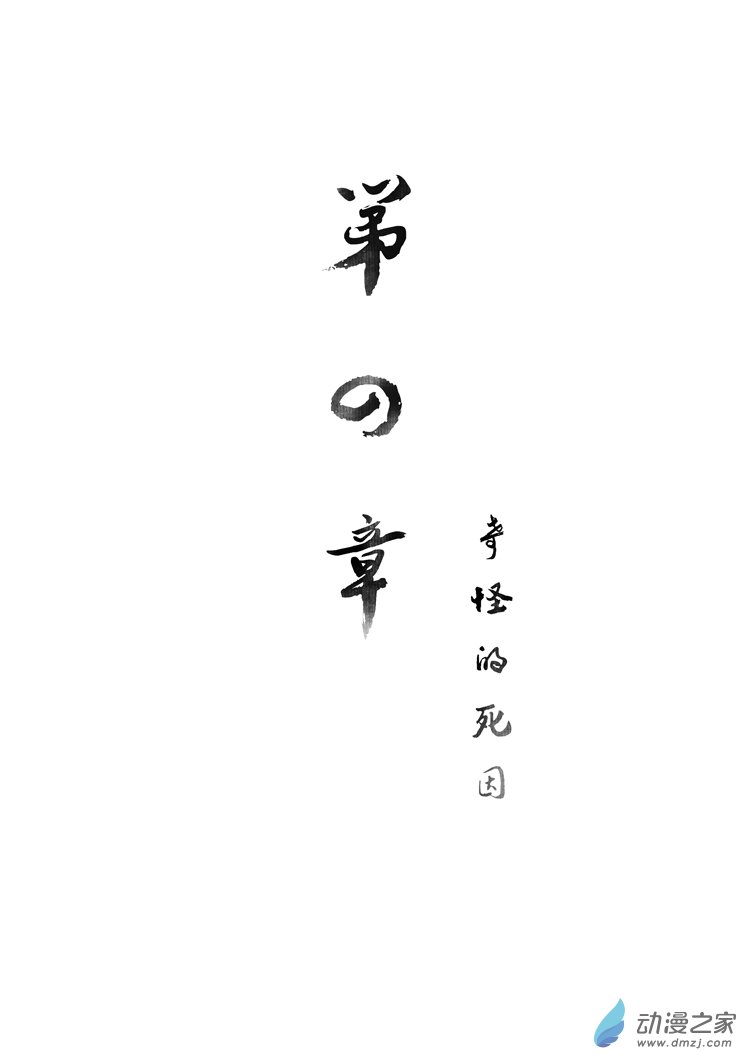 第四章
奇怪的死因
动漫之家
www.dmzj.com